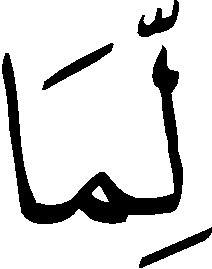 لِّمَا